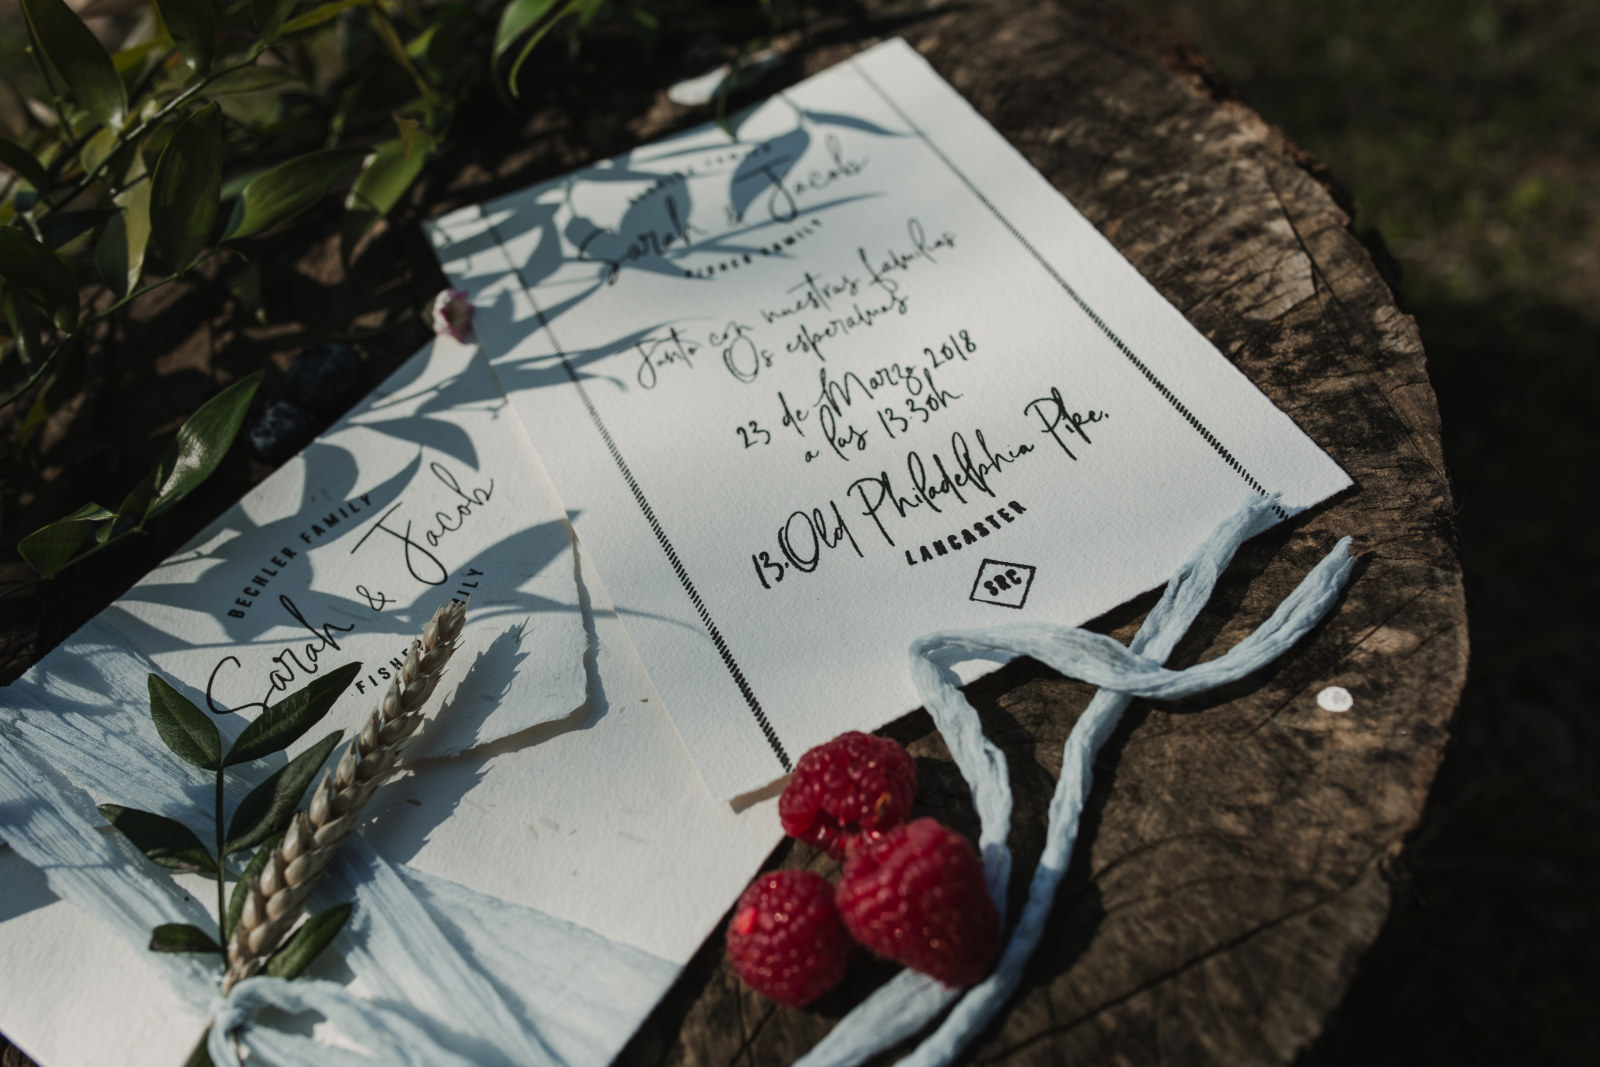 Sarah & Jacob
FAMILY
Junto con nuestras familias
Os esperamos
23 de Marzo 2018
a las 13:30h.
13. Old Philadelphia Pike.
LANCASTER
SRC
BECHLER FAMILY
Sarah & Jacob
FISHER